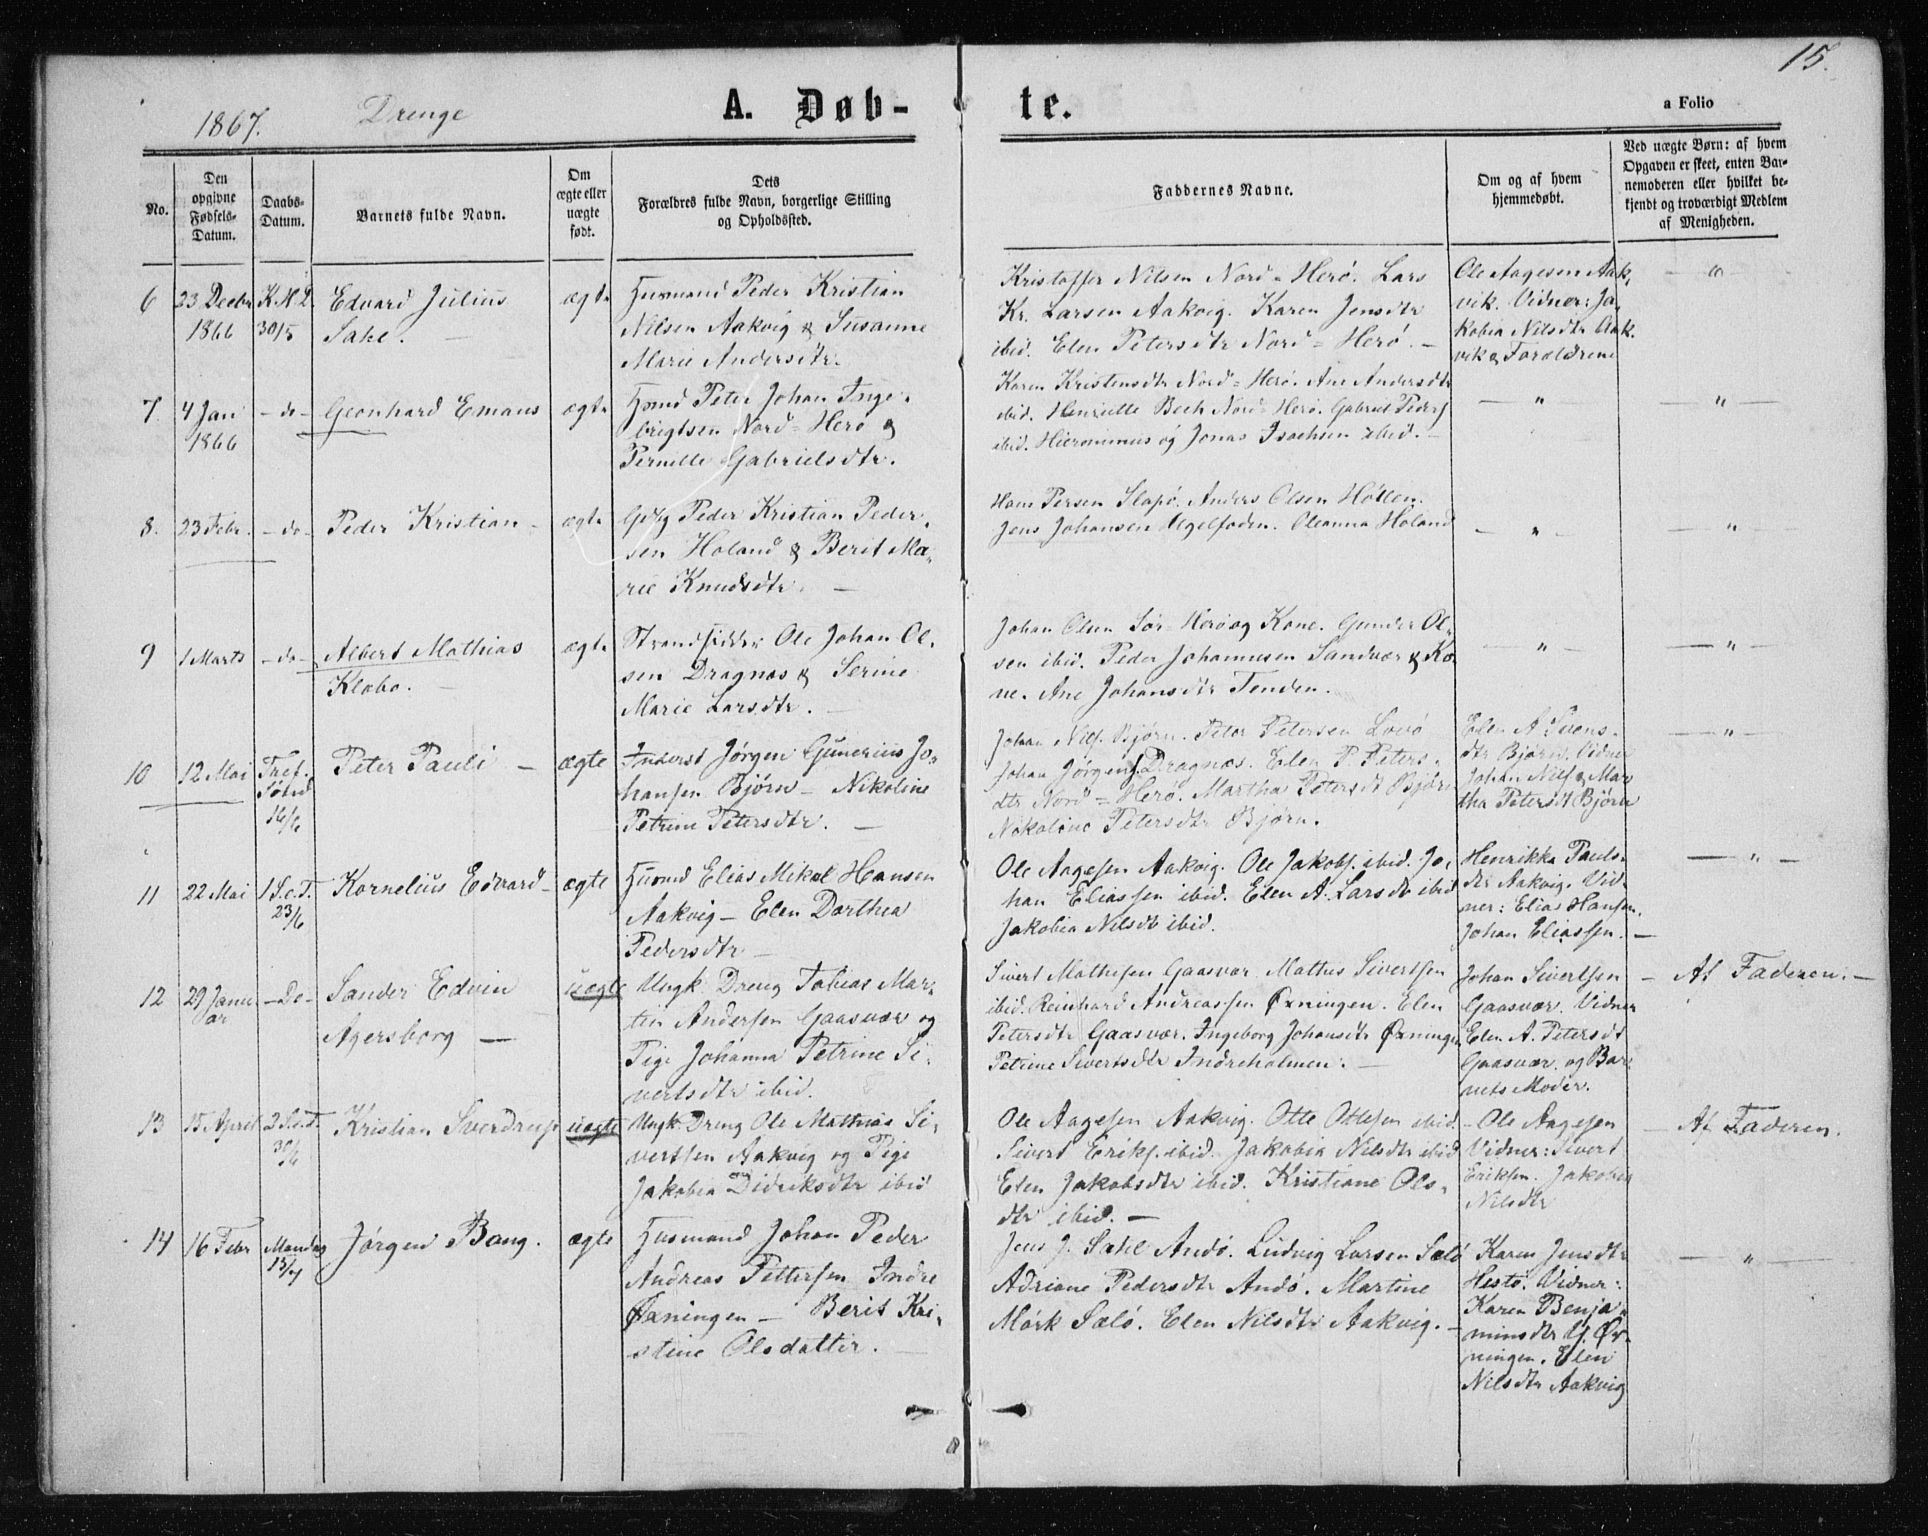 15.
1867.
Drenge
A. Døb-
te.
a Folio
No.
Den
opgivne
Fødsels-
Datum.
Daabs-
Datum.
Barnets fulde Navn.
Om
ægte eller
uægte
født.
Dets
Forældres fulde Navn, borgerlige Stilling
og Opholdssted.
Faddernes Navne.
Om og af hvem
hjemmedøbt.
Ved uægte Børn: af hvem
Opgaven er skeet, enten Bar-
nemoderen eller hvilket be-
kjendt og troværdigt Medlem
af Menigheden.
6
23 Decbr
1866
30/5
Edvard Julius
Sahl.
ægte
Husmand Peder Kristian
Nilsen Aakvig & Susanne
Marie Andersdtr.
Kristoffer Nilsen Nord-Herø. Lars
Kr. Larsen Aakvig. Karen Jensdtr
ibid. Elen Petersdtr Nord-Herø.
Ole Aagesen Aak-
vik. Vidner: Ja-
kobia Nilsdtr Aak-
vik & Forældrene
— " —
7.
4 Jan
1866
- do -
Geonhard Emans
ægte
Hsmd Peter Johan Inge-
brigtsen Nord-Herø &
Pernille Gabrielsdtr.
Karen Kristensdtr Nord-Herø. Ane Andersdtr
ibid. Henriette Bech Nord-Herø. Gabriel Peders
ibid. Hieronimus og Jonas Isachsen ibid.
— " —
— " —
8.
23 Febr.
- do -
Peder Kristian
ægte
Peder Kristian Peder-
sen Holand & Berit Ma-
rie Knudsdtr.
Hans Persen Slapø. Anders Olsen Hølten.
Jens Johansen Oleanna Holand
— " —
— " —
9
1 Marts
- do -
Albert Mathias
Klæbo.
ægte
Strandsidder Ole Johan Ol-
sen Dragnæs & Serine
Marie Larsdtr.
Johan Olsen Sør-Herø og Kone. Gunder Ol-
sen ibid. Peder Johannesen Sandvær & Ko-
ne. Ane Johansdtr Tenden.
— " —
— " —
10
12 Mai
Tref.
Sønd
16/6
Peter Pauli
ægte
Inderst Jørgen Gunerius Jo-
hansen Bjørn - Nikoline
Petrine Petersdtr.
Johan Nils. Bjørn. Peter Petersen Lovø
Johan Jørgens. Dragnæs. Elen P. Peters-
dtr Nord-Herø. Martha Petersdt Bjørn
Nokoline Petersdtr Bjørn.
Elen A Svens-
dtr Bjørn. Vidner
Johan Nils & Mar
tha Petersdt Bjørn
— " —
11
22 Mai
1 S.e.T.
23/6
Kornelius Edvard
ægte
Husmd Elias Mikal Hansen
Aakvig - Elen Dorthea
Pedersdtr
Ole Aagesen Aakvig. Ole Jakobs. ibid. Jo-
han Eliassen ibid. Elen A. Larsdtr ibid
Jakobia Nilsdtr ibid.
Henrikka Pauls-
dtr Aakvig. Vid-
ner: Elias Hansen.
Johan Eliassen.
— " —
12
29 Janu
ar
- Do -
Sander Edvin
Agersborg
uægte
Ungk. Dreng Tobias Mar-
tin Andersen Gaasvær og
Pige Johanna Petrine Si-
vertsdtr ibid.
Sivert Mathesen Gaasvær. Mathis Sivertsen
ibid. Reinhard Andreassen Øxningen. Elen
Petersdtr Gaasvær. Ingeborg Johansdtr Øxningen
Petrine Sivertsdtr Indreholmen.
Johan Sivertsen
Gaasvær. Vidner
Elen A. Petersdt
Gaasvær. og Bar-
nets Moder.
— Af Faderen. —
13
15 April
2 S.e.T.
30/6
Kristian Sverdrup
uægte
Ungk. Dreng Ole Mathias Si-
vertsen Aakvig og Pige
Jakobia Didriksdtr ibid
Ole Aagesen Aakvig. Otte Ottesen ibid.
Sivert Eriks. ibid. Jakobia Nilsdtr ibid
Elen Jakobsdtr ibid. Kristiane Ols-
dtr ibid.
- Ole Aagesen
Vidner: Sivert
Eriksen. Jakobia
Nilsdtr
— Af Faderen.
14
16 Febr
Mandag
15/7
Jørgen Bang.
ægte
Husmand Johan Peder
Andreas Pettersen Indre
Øxningen - Berit Kri-
stine Olsdatter.
Jens J. Sahl Andø. Ludvig Larsen Sælø
Adriane Pedersdtr Andø. Martine
Mørk Sælø. Elen Nilsdtr Aakvig.
Karen Jensdtr
Hestø. Vidner:
Karen Benja-
minsdtr Øx-
ningen. Elen
Nilsdtr Aakvig
— " —